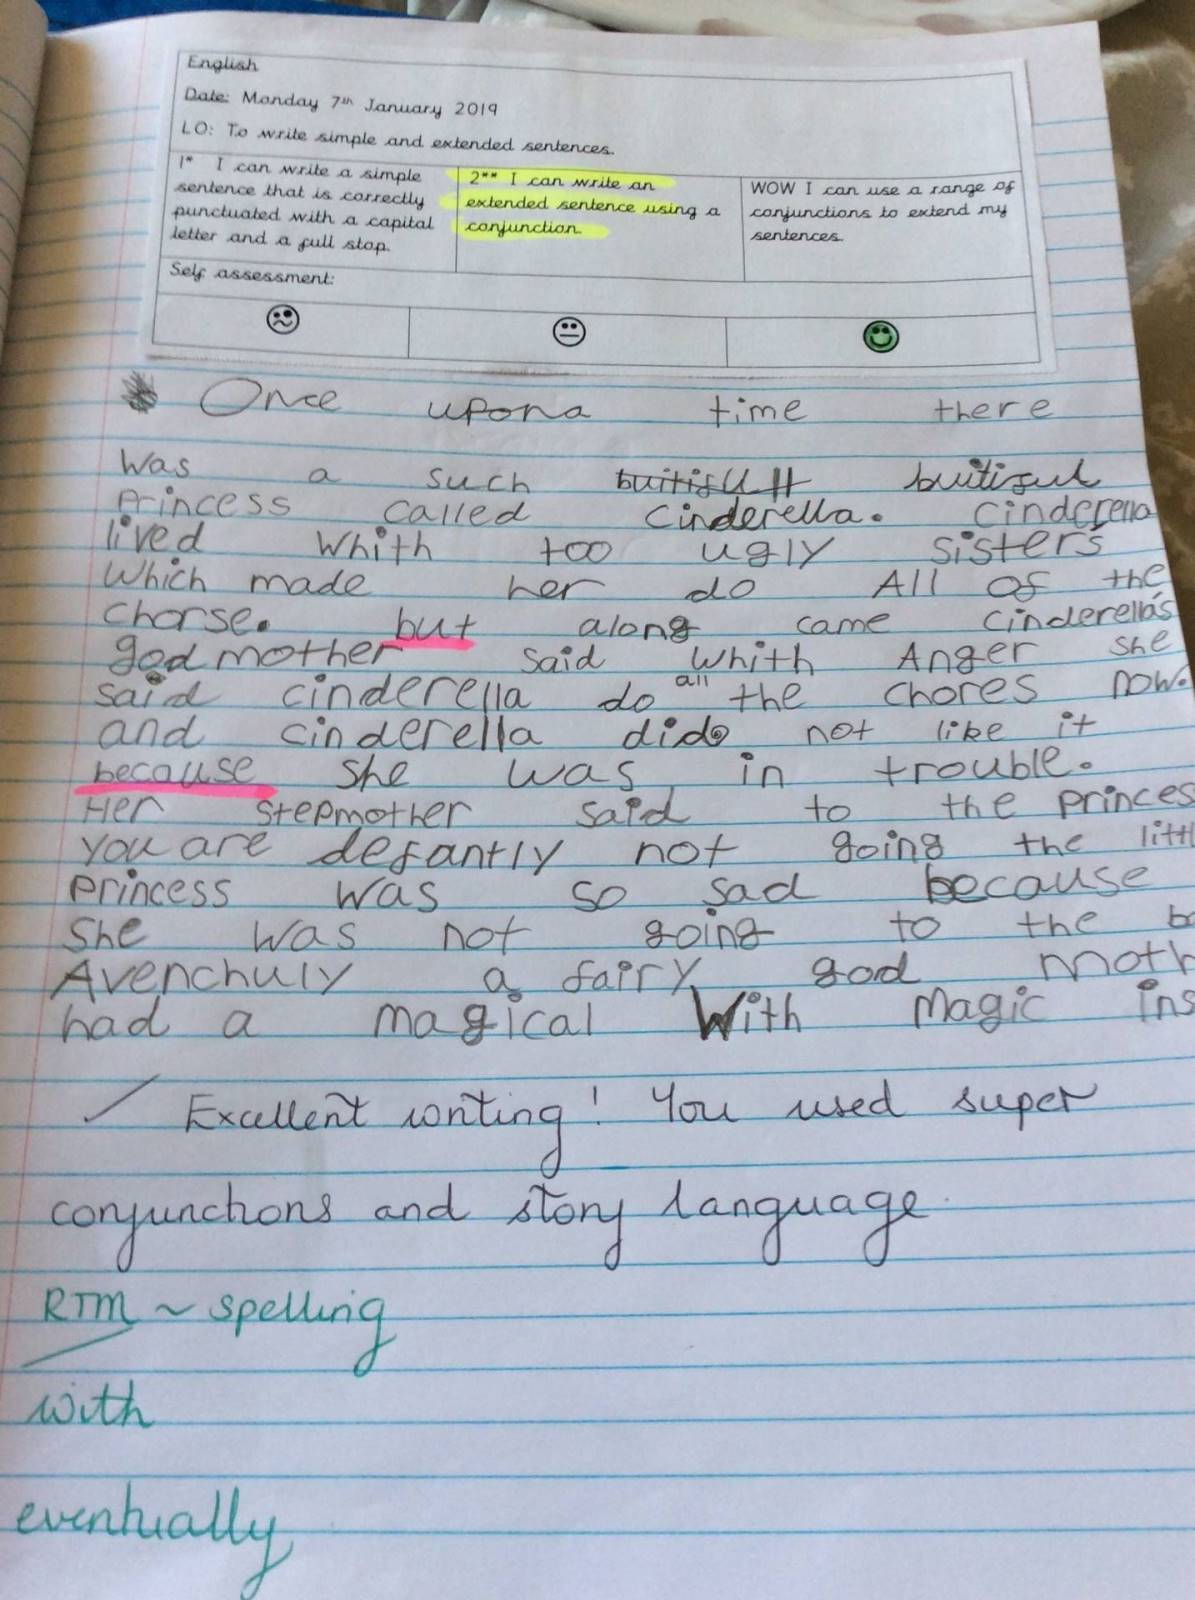 English
Date: Monday 7th January 2019
LO: To write simple and extended sentences.
1* I can write a simple
sentence that is correctly
punctuated with a capital
letter and a full stop.
2** I can write an
extended sentence using a
conjunction.
WOW I can use a range of
conjunctions to extend my
sentences.
Self assessment:
Once upona time there
was a such buitiful
Princess called cinderella. cinderella
lived whith too ugly sisters
which made her do All of the
chorse. but along came cinderella's
god mother said whith Anger she
said cinderella do all the chores now.
and cinderella did not like it
because she was in trouble.
Her stepmother said to the princes
you are defantly not going the
princess was so sad because
she was not going to the
Avenchuly a fairy god
had a magical with magic
Excellent writing! You used super
conjunctions and story language.
RTM ~ spelling
with
eventually